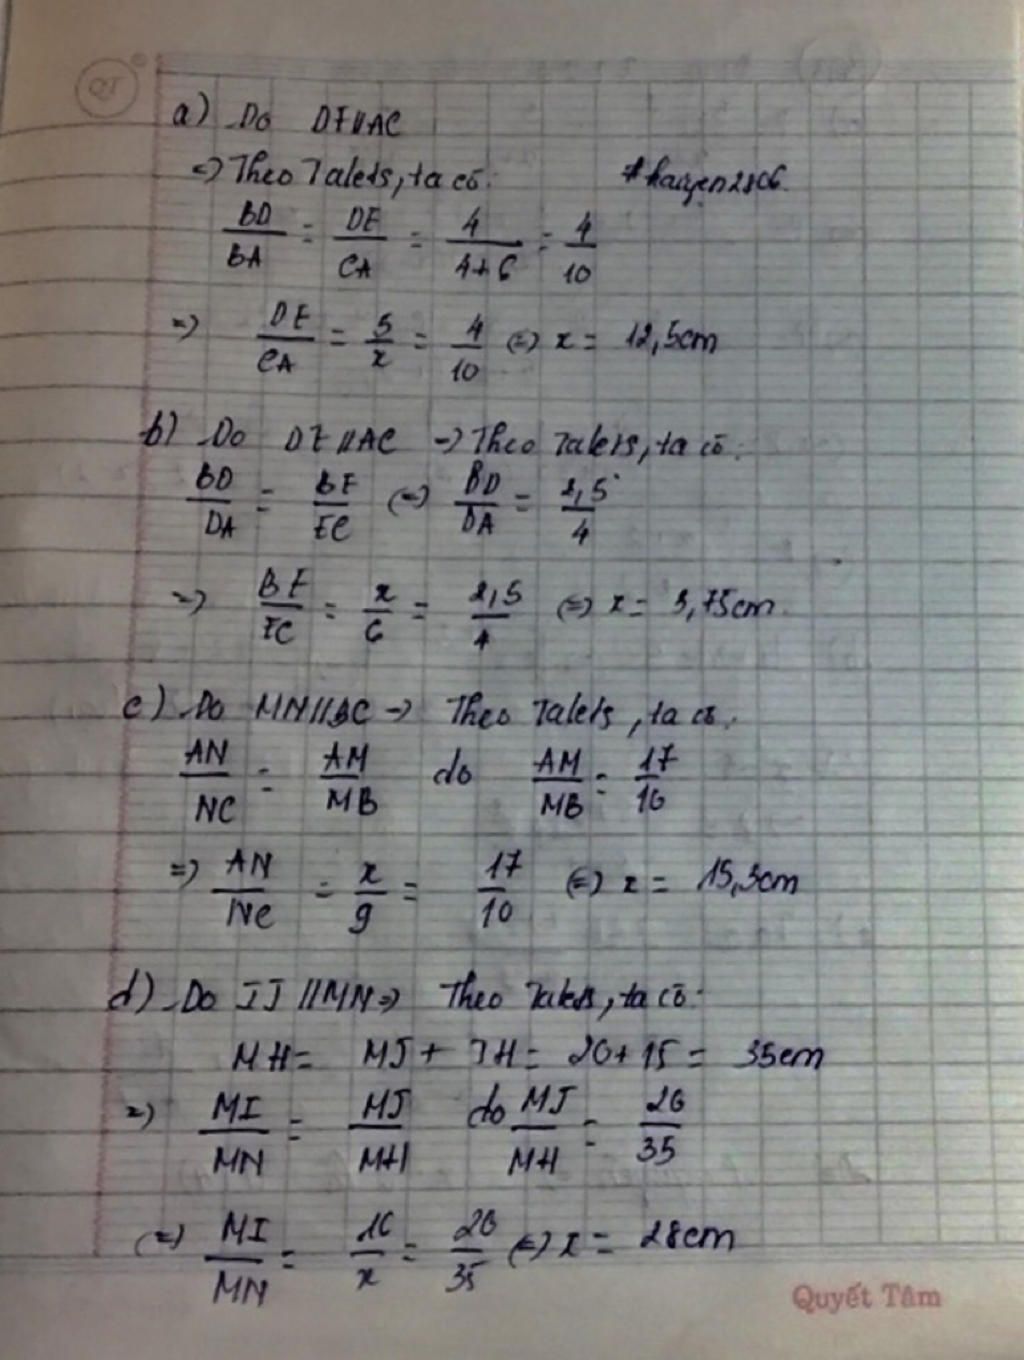 a) Do DE//AC
=> Theo Talets, ta có:
BD/BA = DE/CA = 4/4+6 = 4/10
=> DE/CA = 5/x = 4/10 <=> x = 12,5cm
b) Do DE//AC => Theo Talets, ta có:
BD/DA = BE/EC <=> BD/DA = 2,5/4
=> BE/EC = x/6 = 2,5/4 <=> x = 3,75cm
c) Do MN//BC => Theo Talets, ta có:
AN/NC = AM/MB do AM/MB = 17/10
=> AN/NC = x/9 = 17/10 <=> x = 15,3cm
d) Do IJ//MN => Theo Talets, ta có:
MH = MJ + JH = 20+15 = 35cm
=> MI/MN = MJ/MH do MJ/MH = 20/35
<=> MI/MN = 16/x = 20/35 <=> x = 28cm
Quyết Tâm